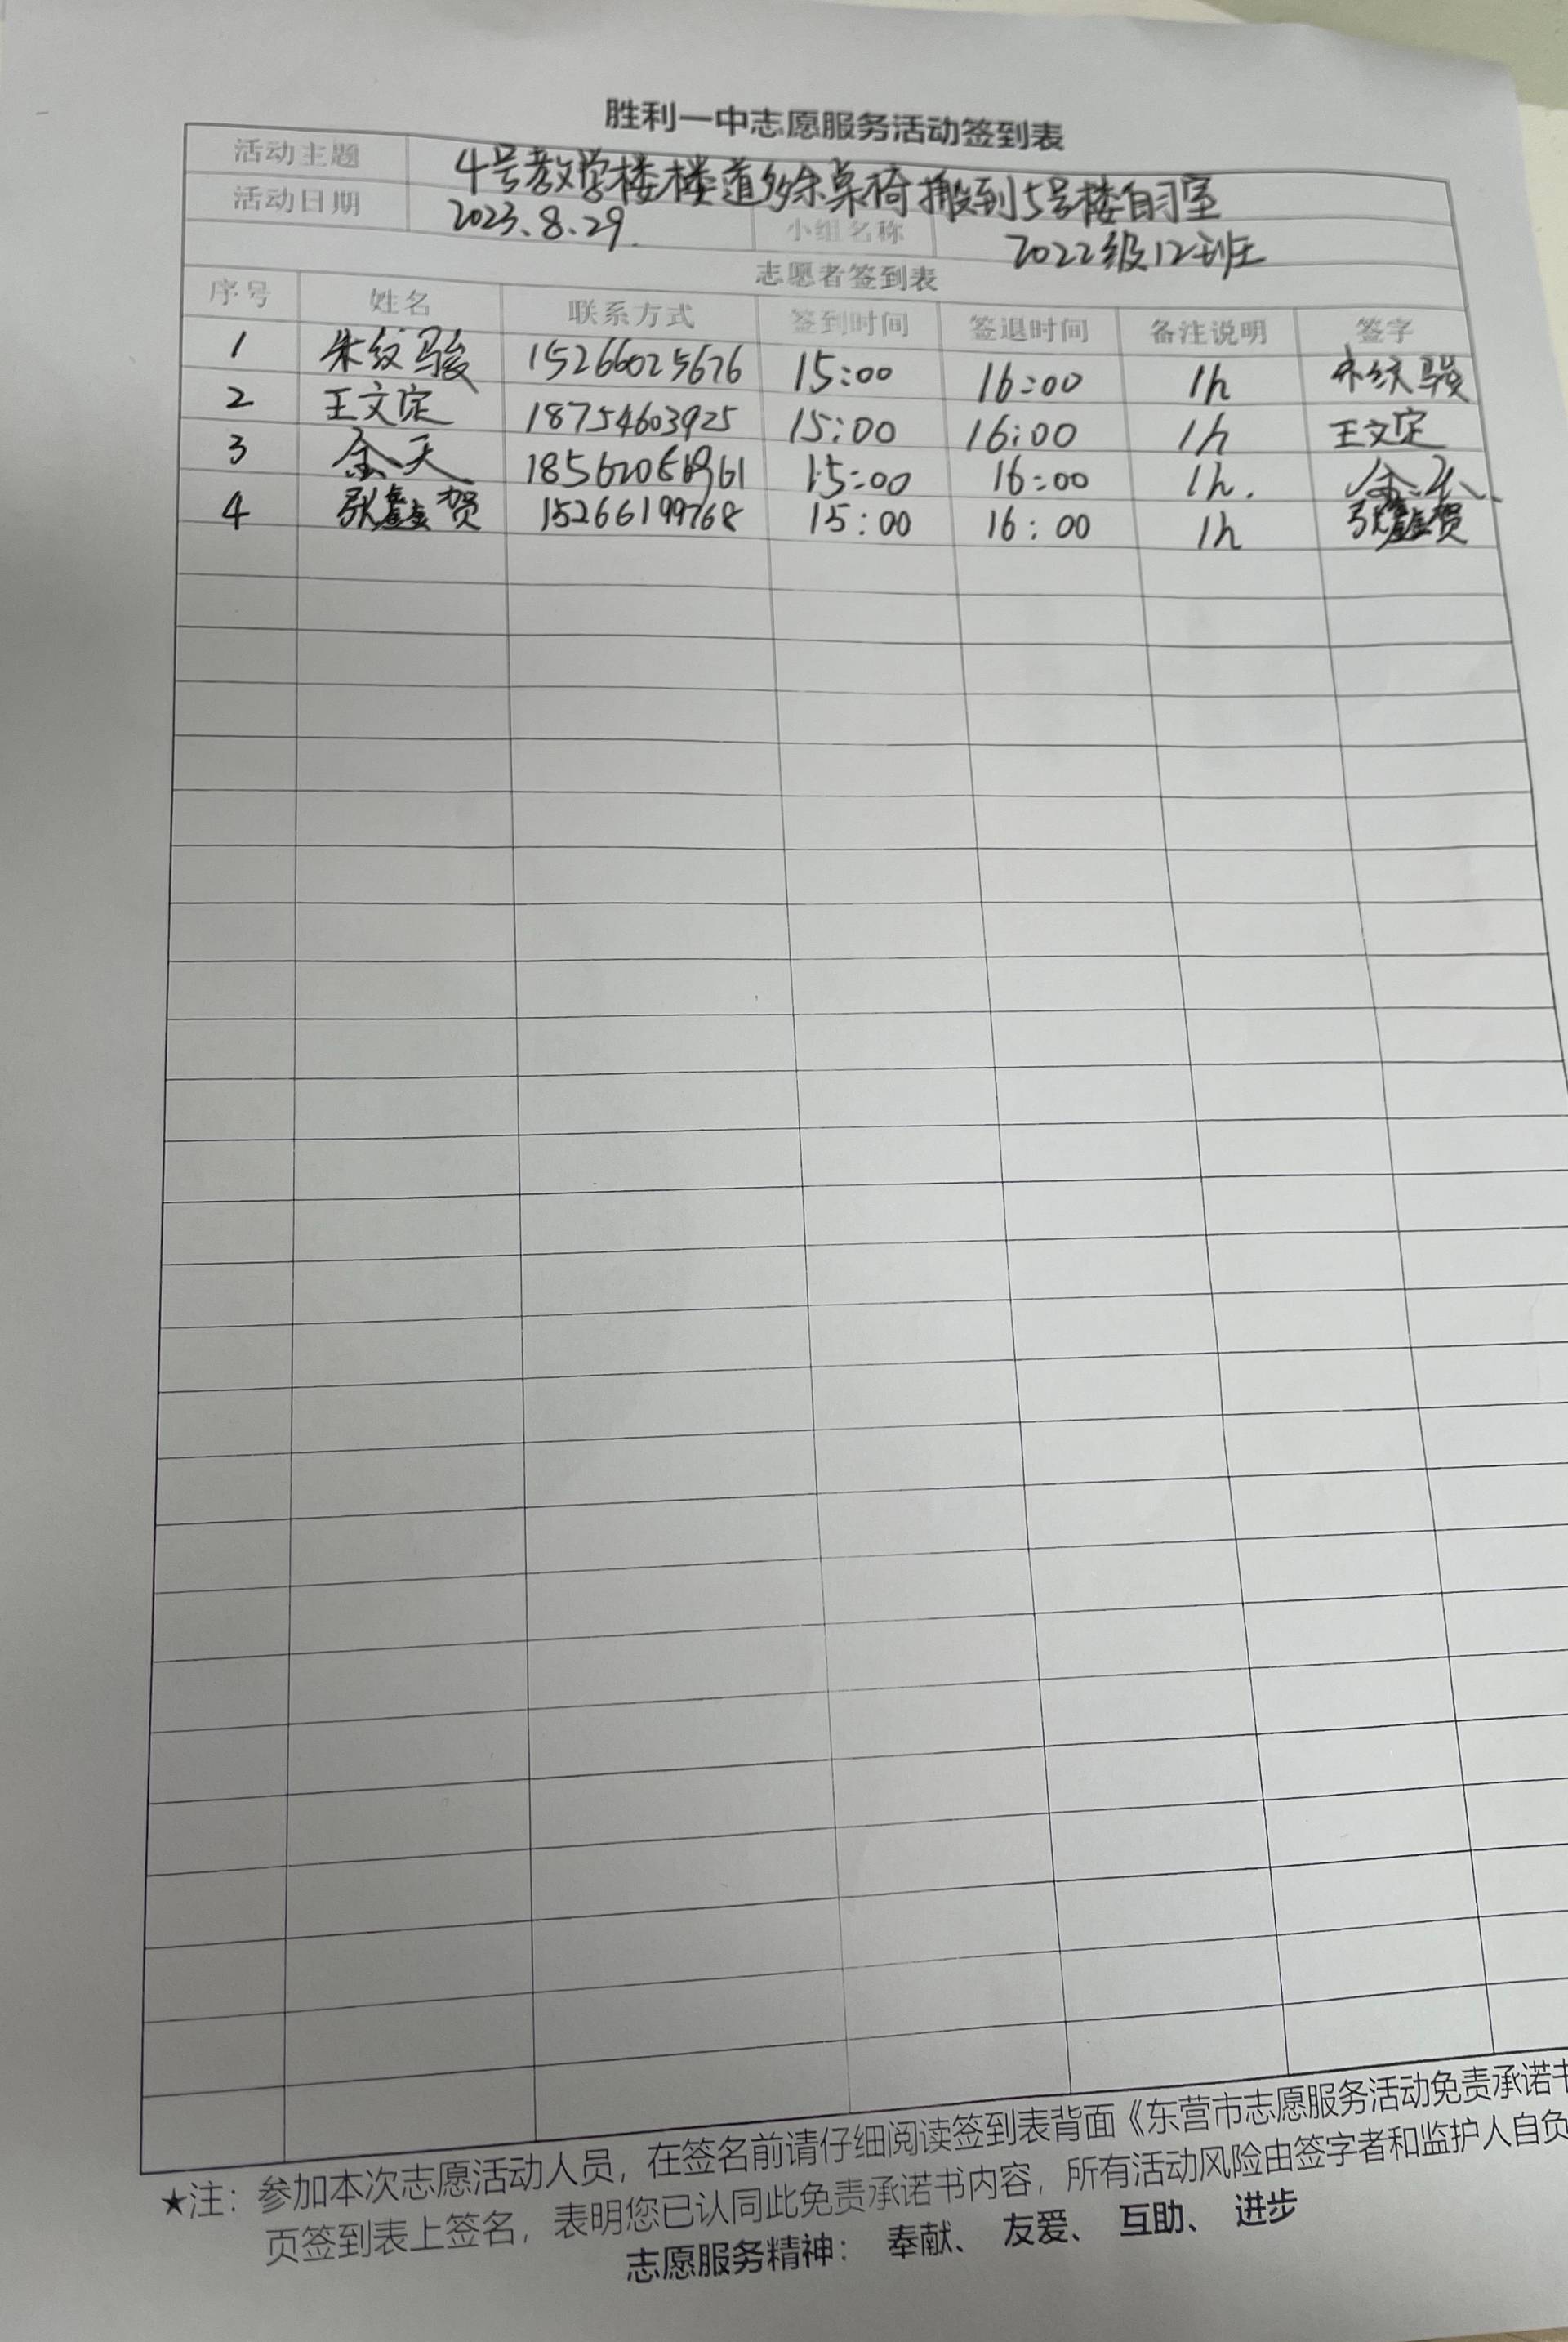 胜利一中志愿服务活动签到表
活动主题 4号教学楼楼道多余桌椅搬到5号楼自习室
活动日期 2023.8.29. 小组名称 2022级12班
志愿者签到表
序号 姓名 联系方式 签到时间 签退时间 备注说明 签字
1 朱纹骏 15266025676 15:00 16:00 1h 朱纹骏
2 王文定 18754603925 15:00 16:00 1h 王文定
3 金天 15:00 16:00 1h.
4 张鑫贺 15266199768 15:00 16:00 1h 张鑫贺
★注：参加本次志愿活动人员，在签名前请仔细阅读签到表背面《东营市志愿服务活动免责承诺书
页签到表上签名，表明您已认同此免责承诺书内容，所有活动风险由签字者和监护人自负
志愿服务精神： 奉献、 友爱、 互助、 进步